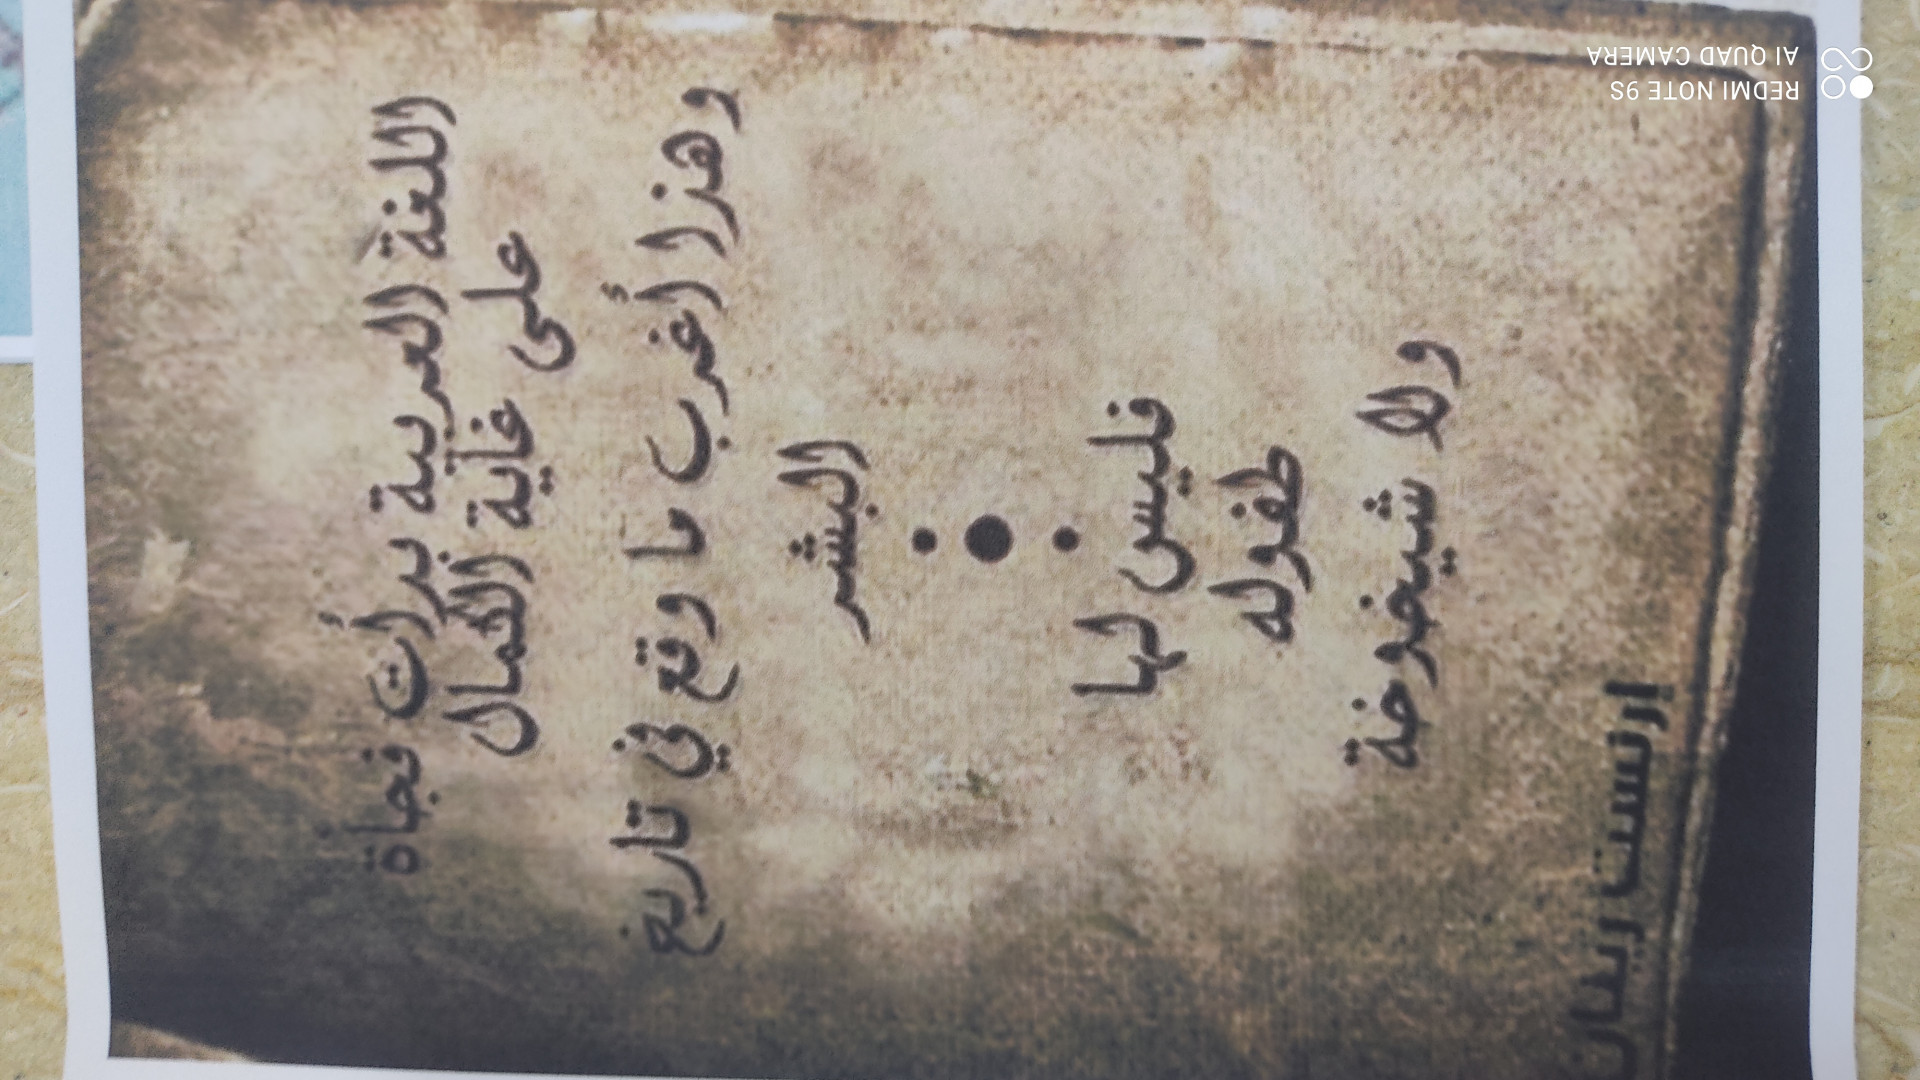 اللغة العربية بدأت فجأة
على غاية الكمال
وهذا أغرب ما وقع في تاريخ
البشر
فليس لها
طفوله
ولا شيخوخة
إرنست رينان
REDMI NOTE 9S
AI QUAD CAMERA